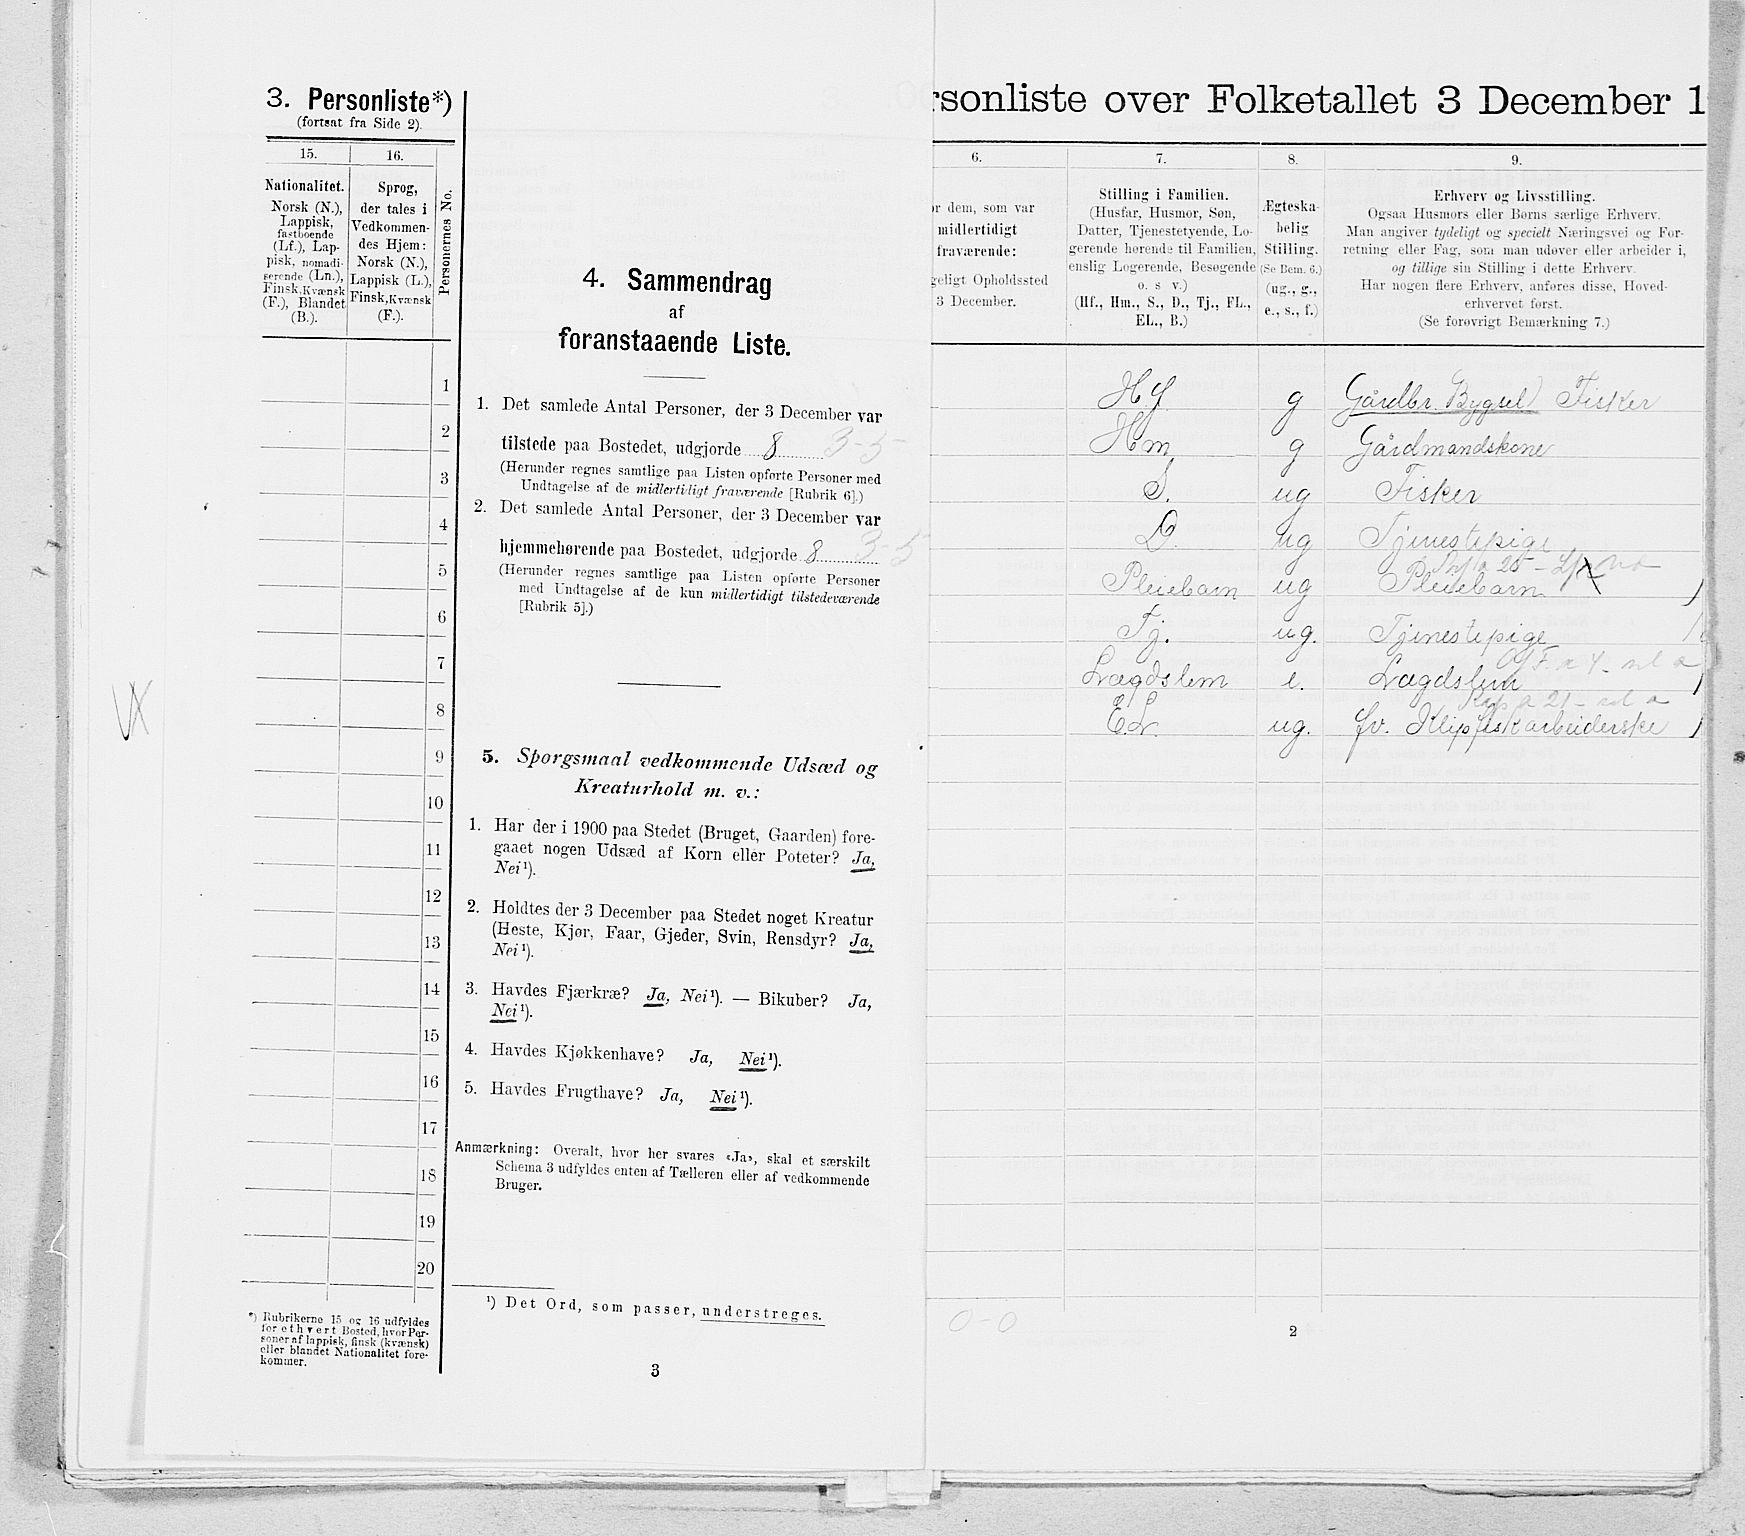 3. Personliste*)
(fortsat fra Side 2).
15.
16.
Personernes No.
Nationalitet.
Norsk (N.),
Lappisk,
fastboende
(Lf.), Lap-
pisk, nomadi-
serende (Ln.),
Finsk, Kvænsk
(F.), Blandet
(B.).
Sprog,
der tales i
Vedkommen-
des Hjem:
Norsk (N.),
Lappisk (L.),
Finsk, Kvænsk
(F.).
1
2
3
4
5
6
7
8
9
10
11
12
13
14
15
16
17
18
19
20
*) Rubrikerne 15 og 16 udfyldes
for ethvert Bosted, hvor Per-
soner af lappisk, finsk (kvænsk)
eller blandet Nationalitet fore-
kommer.
4. Sammendrag
af
foranstaaende Liste.
1. Det samlede Antal Personer, der 3 December var
tilstede paa Bostedet, udgjorde 8 3-5
(Herunder regnes samtlige paa Listen opførte Personer med
Undtagelse af de midlertidigt fraværende [Rubrik 6].)
2. Det samlede Antal Personer, der 3 December var
hjemmehørende paa Bostedet, udgjorde 8 3-5
(Herunder regnes samtlige paa Listen opførte Personer
med Undtagelse af de kun midlertidigt tilstedeværende
[Rubrik 5].)
5. Spørgsmaal vedkommende Udsæd og
Kreaturhold m. v.:
1. Har der i 1900 paa Stedet (Bruget, Gaarden) fore-
gaaet nogen Udsæd af Korn eller Poteter? Ja,
Nei¹).
2. Holdtes der 3 December paa Stedet noget Kreatur
(Heste, Kjør, Faar, Gjeder, Svin, Rensdyr? Ja,
Nei¹).
3. Havdes Fjærkræ? Ja, Nei¹). — Bikuber? Ja,
Nei¹).
4. Havdes Kjøkkenhave? Ja, Nei¹).
5. Havdes Frugthave? Ja, Nei¹).
Anmærkning: Overalt, hvor her svares «Ja», skal et særskilt
Schema 3 udfyldes enten af Tælleren eller af vedkommende
Bruger.
¹) Det Ord, som passer, understreges.
3
rsonliste over Folketallet 3 December 1
6.
7.
8.
9.
or dem, som var
midlertidigt
fraværende:
geligt Opholdssted
3 December.
Stilling i Familien.
(Husfar, Husmor, Søn,
Datter, Tjenestetyende, Lo-
gerende hørende til Familien,
enslig Logerende, Besøgende
o. s v.)
(Hf., Hm., S., D., Tj., FL.,
EL., B.)
Ægteska-
belig
Stilling.
(Se Bem. 6.)
(ug., g.,
e., s., f.)
Erhverv og Livsstilling.
Ogsaa Husmors eller Børns særlige Erhverv.
Man angiver tydeligt og specielt Næringsvei og For-
retning eller Fag, som man udøver eller arbeider i,
og tillige sin Stilling i dette Erhverv.
Har nogen flere Erhverv, anføres disse, Hoved-
erhvervet først.
(Se forøvrigt Bemærkning 7.)
Hf g Gårdbr. Bygsel) Fisker
Hm g Gårdmandskone
S. ug Fisker
D. ug Tjenestepige
Pleiebarn ug Pleiebarn
Tj. ug. Tjenestepige
Lægdslem e. Lægdslem
E.L. ug. fv. Klipfiskarbeiderske
0-0
2